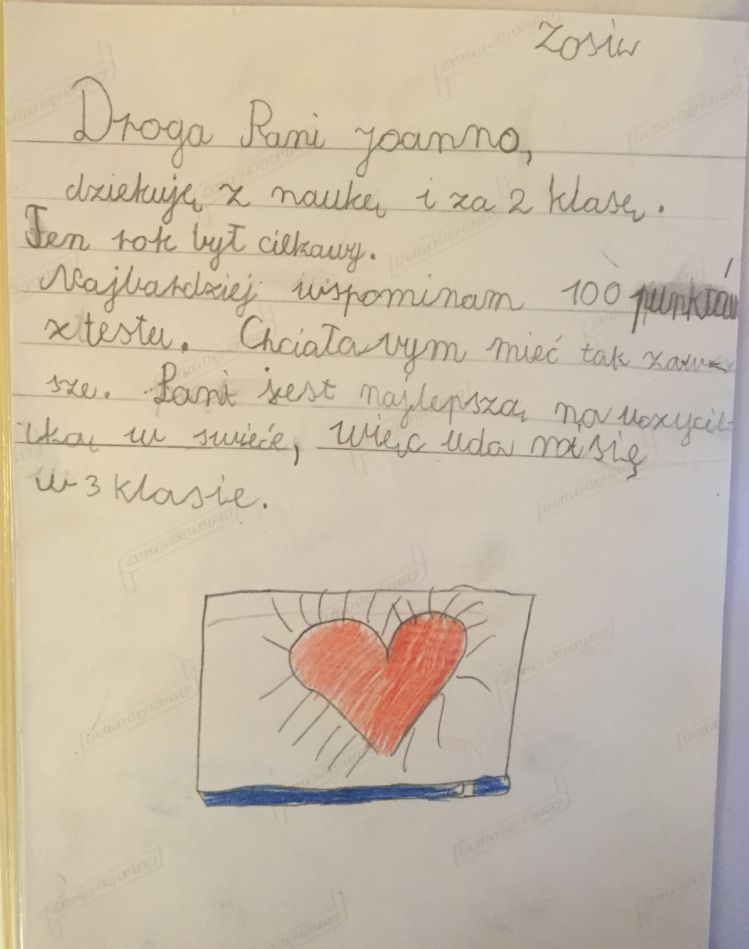 Zosia
Droga Pani Joanno,
dziekuję z naukę i za 2 klasę.
Ten rok był ciekawy.
Najbardziej wspominam 100 punktów
z testu. Chciała vym mieć tak zaw-
sze. Pani jest najlepszą nauczyciel-
ką w swiećie, więc uda na się
w 3 klasie.